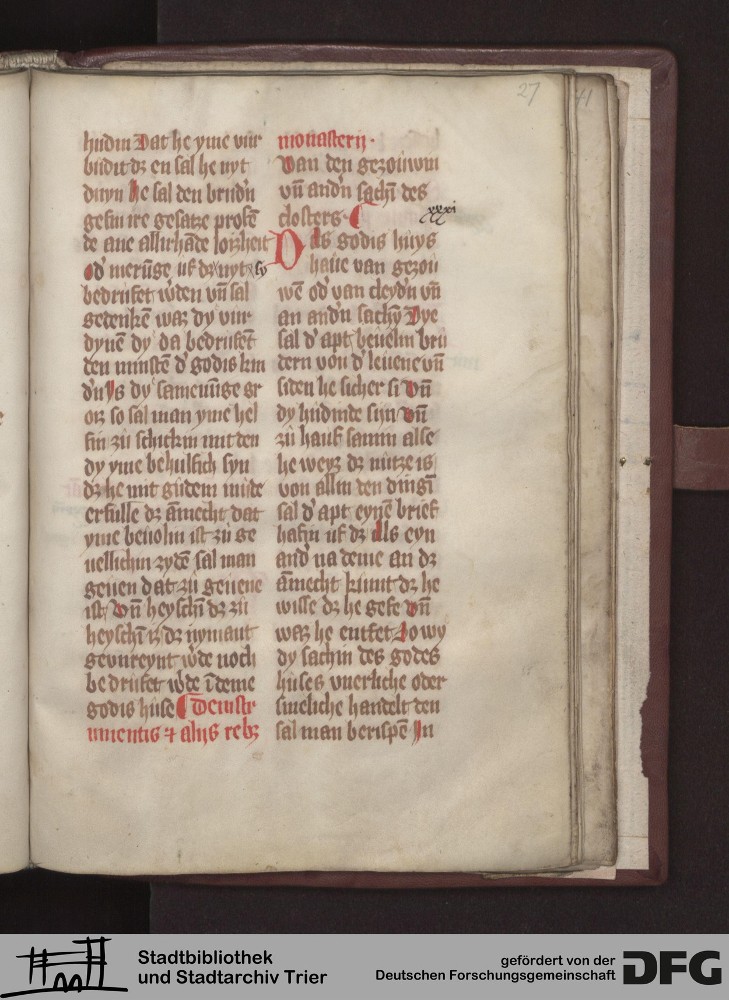 27
41
hudin Dat he yme vur
budit dz en sal he nyt
duyn He sal den brud'n
gesin ire gesatze profē
de ane allirhāde loizheit
od' merūge uf dz nyt so
bedrufet w'den vn̄ sal
gedenkē waz dy vur
dynē dy da bedrufēt
den minstē d' godis kin
d'n Is dy samenūge gr
oiz so sal man yme hel
fin zů schickin mit den
dy yme behulfich syn
dz he mit gůdem můde
erfulle dz āmecht dat
yme beuolin ist zů ge
uellichin zydē sal man
geuen dat zů geuene
ist Vn̄ heyschē dz zů
heyschē is dz nymant
gevnreynt w'de noch
bedrufet w'de ī deme
godis huse De instr
umentis ⁊ alijs rebz
monasterij .
Van den gezoiuwin
vn̄ and'n sachē des
closters
xxxi
Das godis huys
haue van gezou
wē od' van cleyd'n vn̄
an and'n sachē Dye
sal d' apt beuelin bru
dern von d' leuene vn̄
siden he sicher si Vn̄
dy hudinde sijn Vn̄
zů hauf samin alse
he weyz dz nutze is
von allin den dingē
sal d' apt eynē brief
hafin uf dz Als eyn
and' na deme an dz
āmecht kumt dz he
wisse dz he gefe Vn̄
waz he entfet So wy
dy sachin des godes
huses vnerliche oder
sineliche handelt den
sal man berispē In
Stadtbibliothek
und Stadtarchiv Trier
gefördert von der
Deutschen Forschungsgemeinschaft
DFG